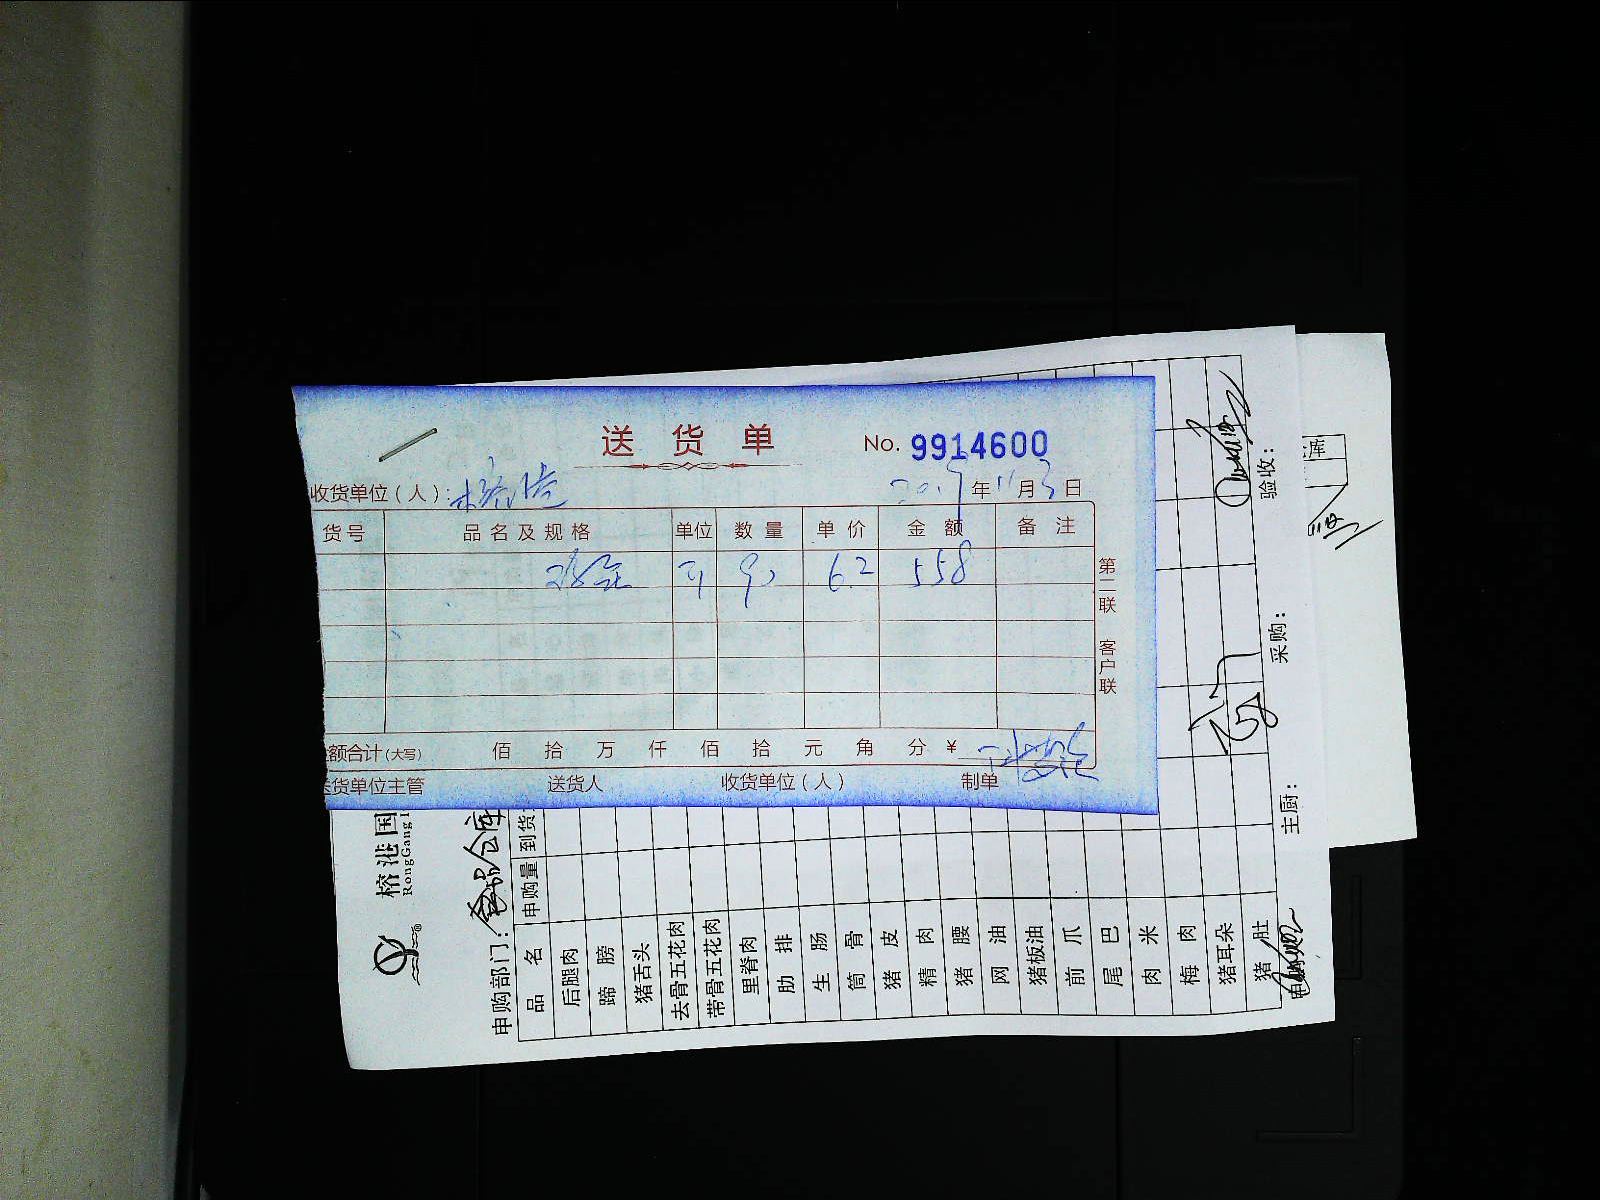 送货单 No. 9914600
收货单位(人): 榕港 2019年11月3日
货号 品名及规格 单位 数量 单价 金额 备注
6.2 558
第二联 客户联
额合计(大写) 佰 拾 万 仟 佰 拾 元 角 分 ¥
货单位主管 送货人 收货单位(人) 制单
榕港国
RongGang I
申购部门: 食品仓库
品名 申购量 到货
后腿肉
蹄膀
猪舌头
去骨五花肉
带骨五花肉
里脊肉
肋排
生肠
筒骨
猪皮
精肉
猪腰
网油
猪板油
前爪
尾巴
肉米
梅肉
猪耳朵
猪肚
主厨: 采购: 验收:
库